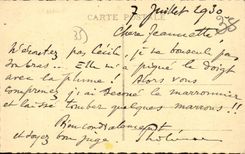 CARTE POSTALE
2 Juillet 1930
Chère Jeannette!
N'écoutez pas Cécile, je la bouscule pas
son bras... Elle m'a piqué le doigt
avec la plume! Alors vous
comprenez j'ai secoué le marronnier
et laissé tomber quelques marrons!!!
Bien cordialement
et soyez bon juge